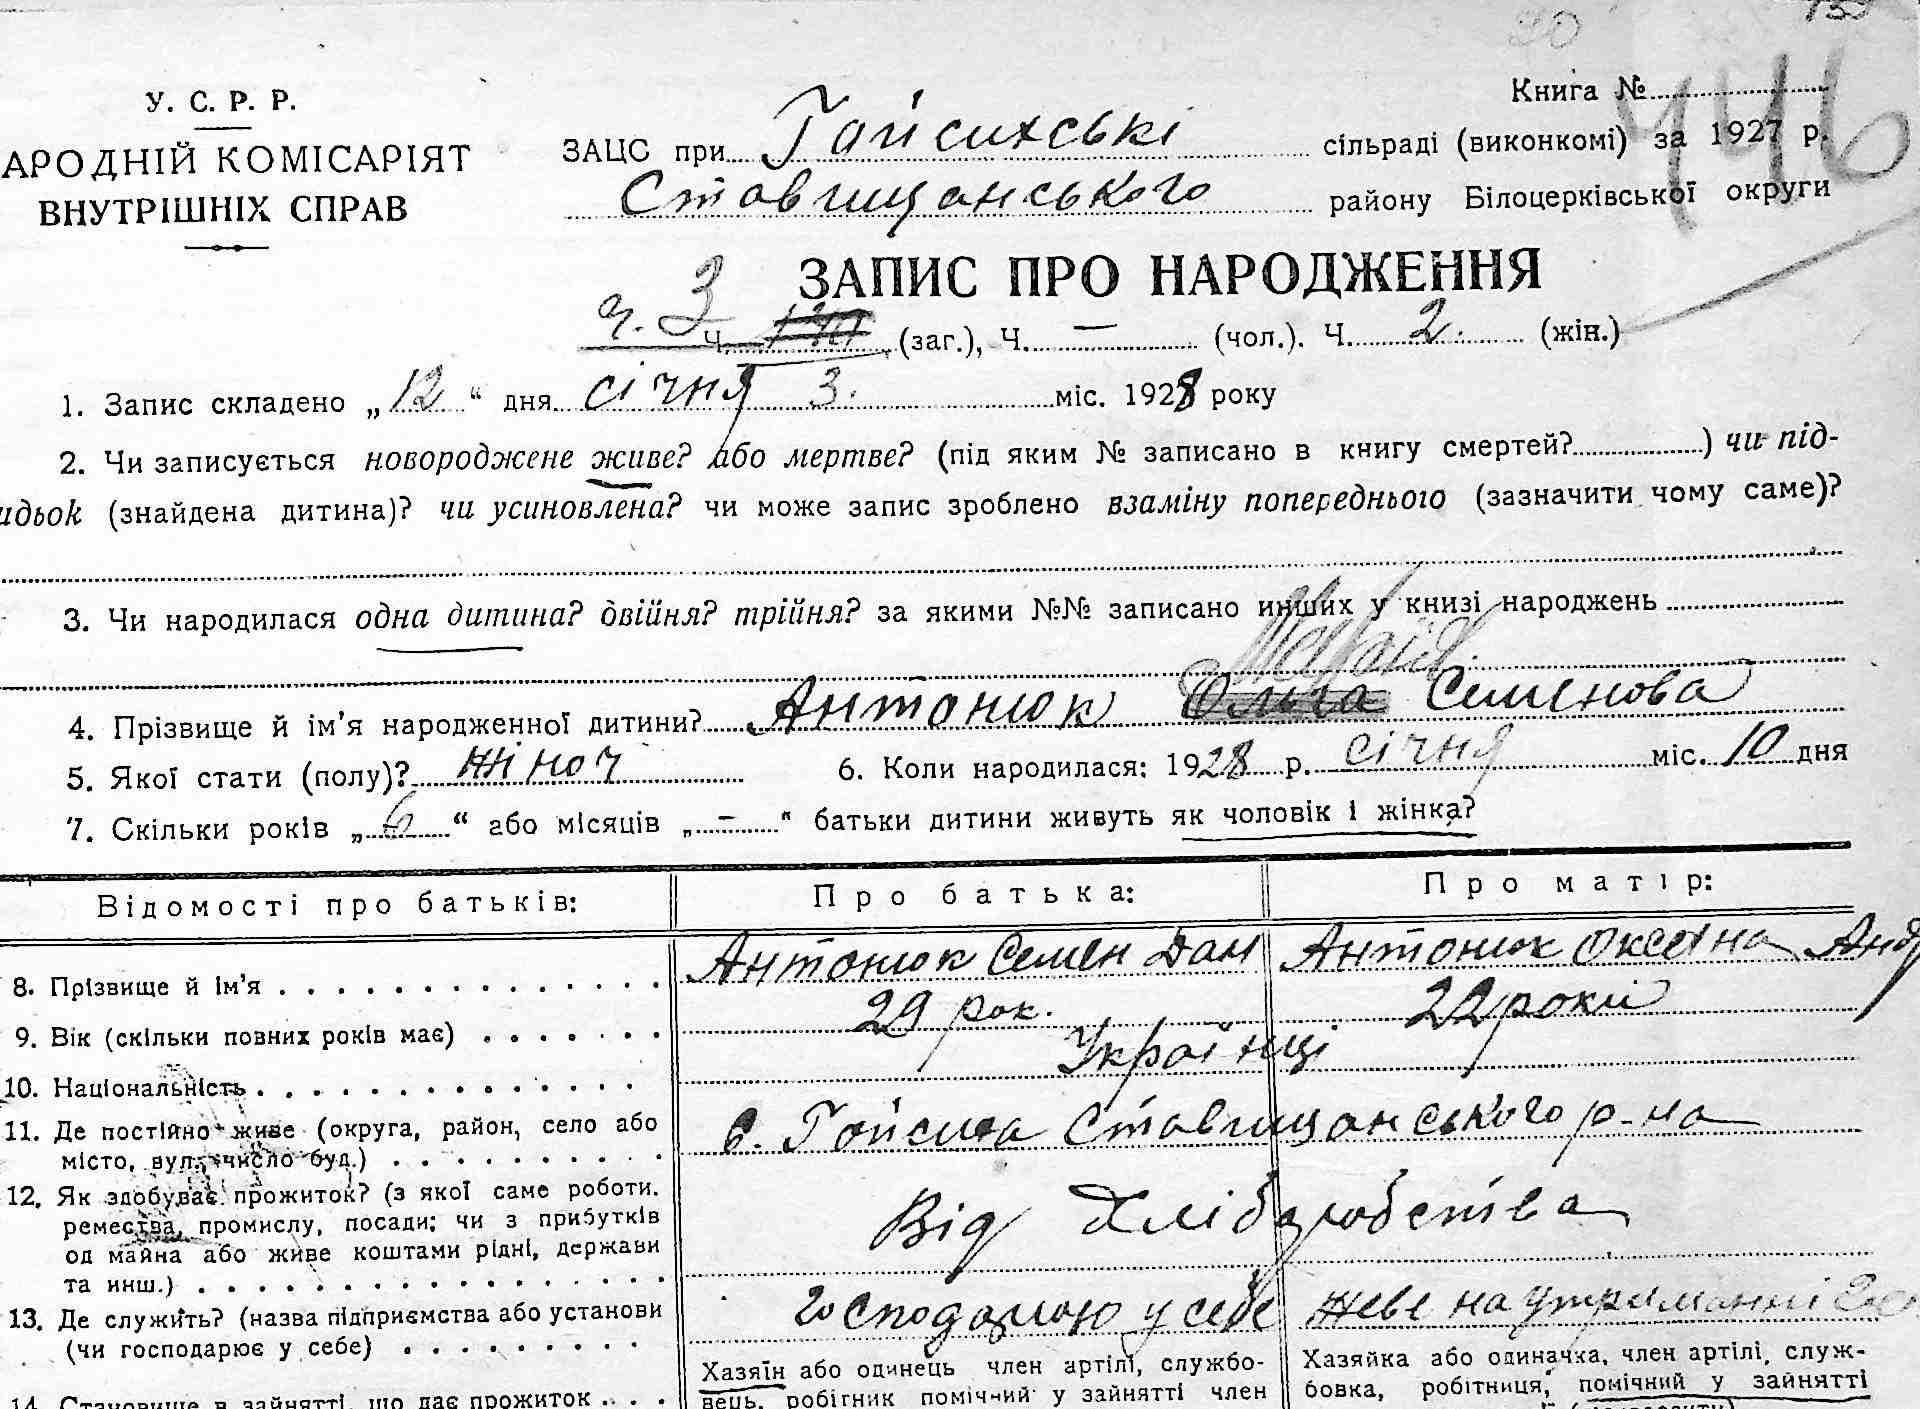 У. С. Р. Р.
АРОДНІЙ КОМІСАРІЯТ
ВНУТРІШНІХ СПРАВ
Книга №
146
ЗАЦС при Гайсихські сільраді (виконкомі) за 1927 р.
Ставищанського району Білоцерківської округи
ЗАПИС ПРО НАРОДЖЕННЯ
ч. 3 Ч. (заг.), Ч. — (чол.). Ч. 2. (жін.)
1. Запис складено „12“ дня січня 3. міс. 1928 року
2. Чи записується новороджене живе? або мертве? (під яким № записано в книгу смертей? ) чи під-
идьок (знайдена дитина)? чи усиновлена? чи може запис зроблено взаміну попереднього (зазначити чому саме)?
3. Чи народилася одна дитина? двійня? трійня? за якими №№ записано инших у книзі народжень
Марія
4. Прізвище й ім’я народженної дитини? Антонюк Ольга Семенова
5. Якої стати (полу)? жіноч 6. Коли народилася: 1928 р. січня міс. 10 дня
7. Скільки років „6“ або місяців „–“ батьки дитини живуть як чоловік і жінка?
Відомості про батьків: Про батька: Про матір:
8. Прізвище й ім’я Антонюк Семен Дан Антонюк Оксана Анд
9. Вік (скільки повних років має) 29 рок. 22 роки
10. Національність Українці
11. Де постійно живе (округа, район, село або
місто, вул., число буд.) с. Гайсиха Ставищанського р-на
12. Як здобуває прожиток? (з якої саме роботи.
ремества, промислу, посади; чи з прибутків
од майна або живе коштами рідні, держави
та инш.) Від Хліборобства
13. Де служить? (назва підприємства або установи
(чи господарює у себе) господарюю у себе живе на утриманні
Хазяїн або одинець член артілі, службо- Хазяйка або одиначка, член артілі, служ-
вець, робітник помічний у зайнятті член бовка, робітниця, помічний у зайнятті
14. Становище в зайнятті, що дає прожиток